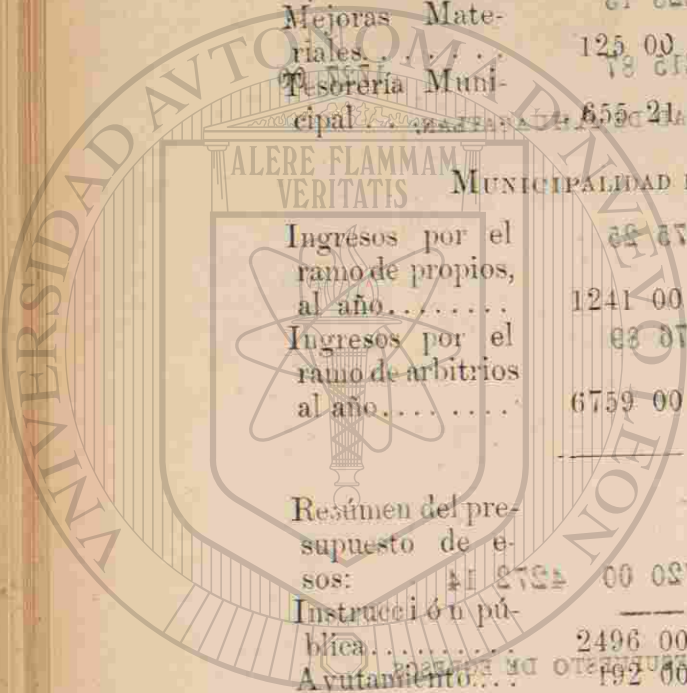 Mejoras Mate-
riales. . . . . . . 125 00
Tesorería Muni-
cipal . . . 655 21
ALERE FLAMMAM
VERITATIS
MUNICIPALIDAD
Ingresos por el
ramo de propios,
al año. . . . . . . . 1241 00
Ingresos por el
ramo de arbitrios
al año. . . . . . . . . 6759 00
Resúmen del pre-
supuesto de e-
sos:
Instrucci ó n pú-
blica. . . . . . . . . . 2496 00
Ayutamiento. . . . 192 00
UNIVERSIDAD AUTONOMA DE NUEVO LEON